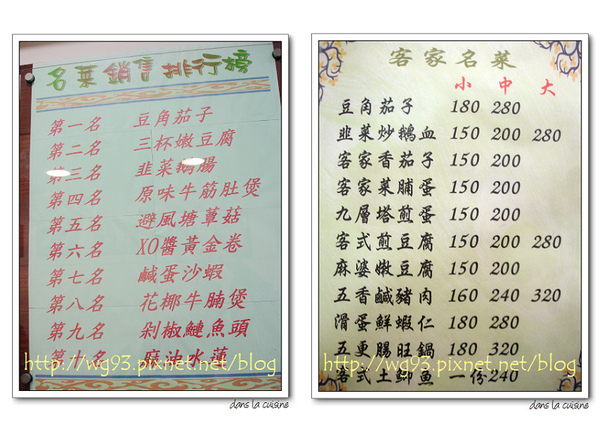 名菜銷售排行榜
第一名 豆角茄子
第二名 三杯嫩豆腐
第三名 韭菜鵝腸
第四名 原味牛筋肚煲
第五名 避風塘蕈菇
第六名 XO醬黃金卷
第七名 鹹蛋沙蝦
第八名 花椰牛腩煲
第九名 剁椒鰱魚頭
第十名 麻油水蓮
http://wg93.pixnet.net/blog
dans la cuisine
客家名菜
小 中 大
豆角茄子 180 280
韭菜炒鵝血 150 200 280
客家香茄子 150 200
客家菜脯蛋 150 200
九層塔煎蛋 150 200
客式煎豆腐 150 200 280
麻婆嫩豆腐 150 200
五香鹹豬肉 160 240 320
滑蛋鮮蝦仁 180 280
五更腸旺鍋 180 320
客式土鯽魚 一份240
http://wg93.pixnet.net/blog
dans la cuisine